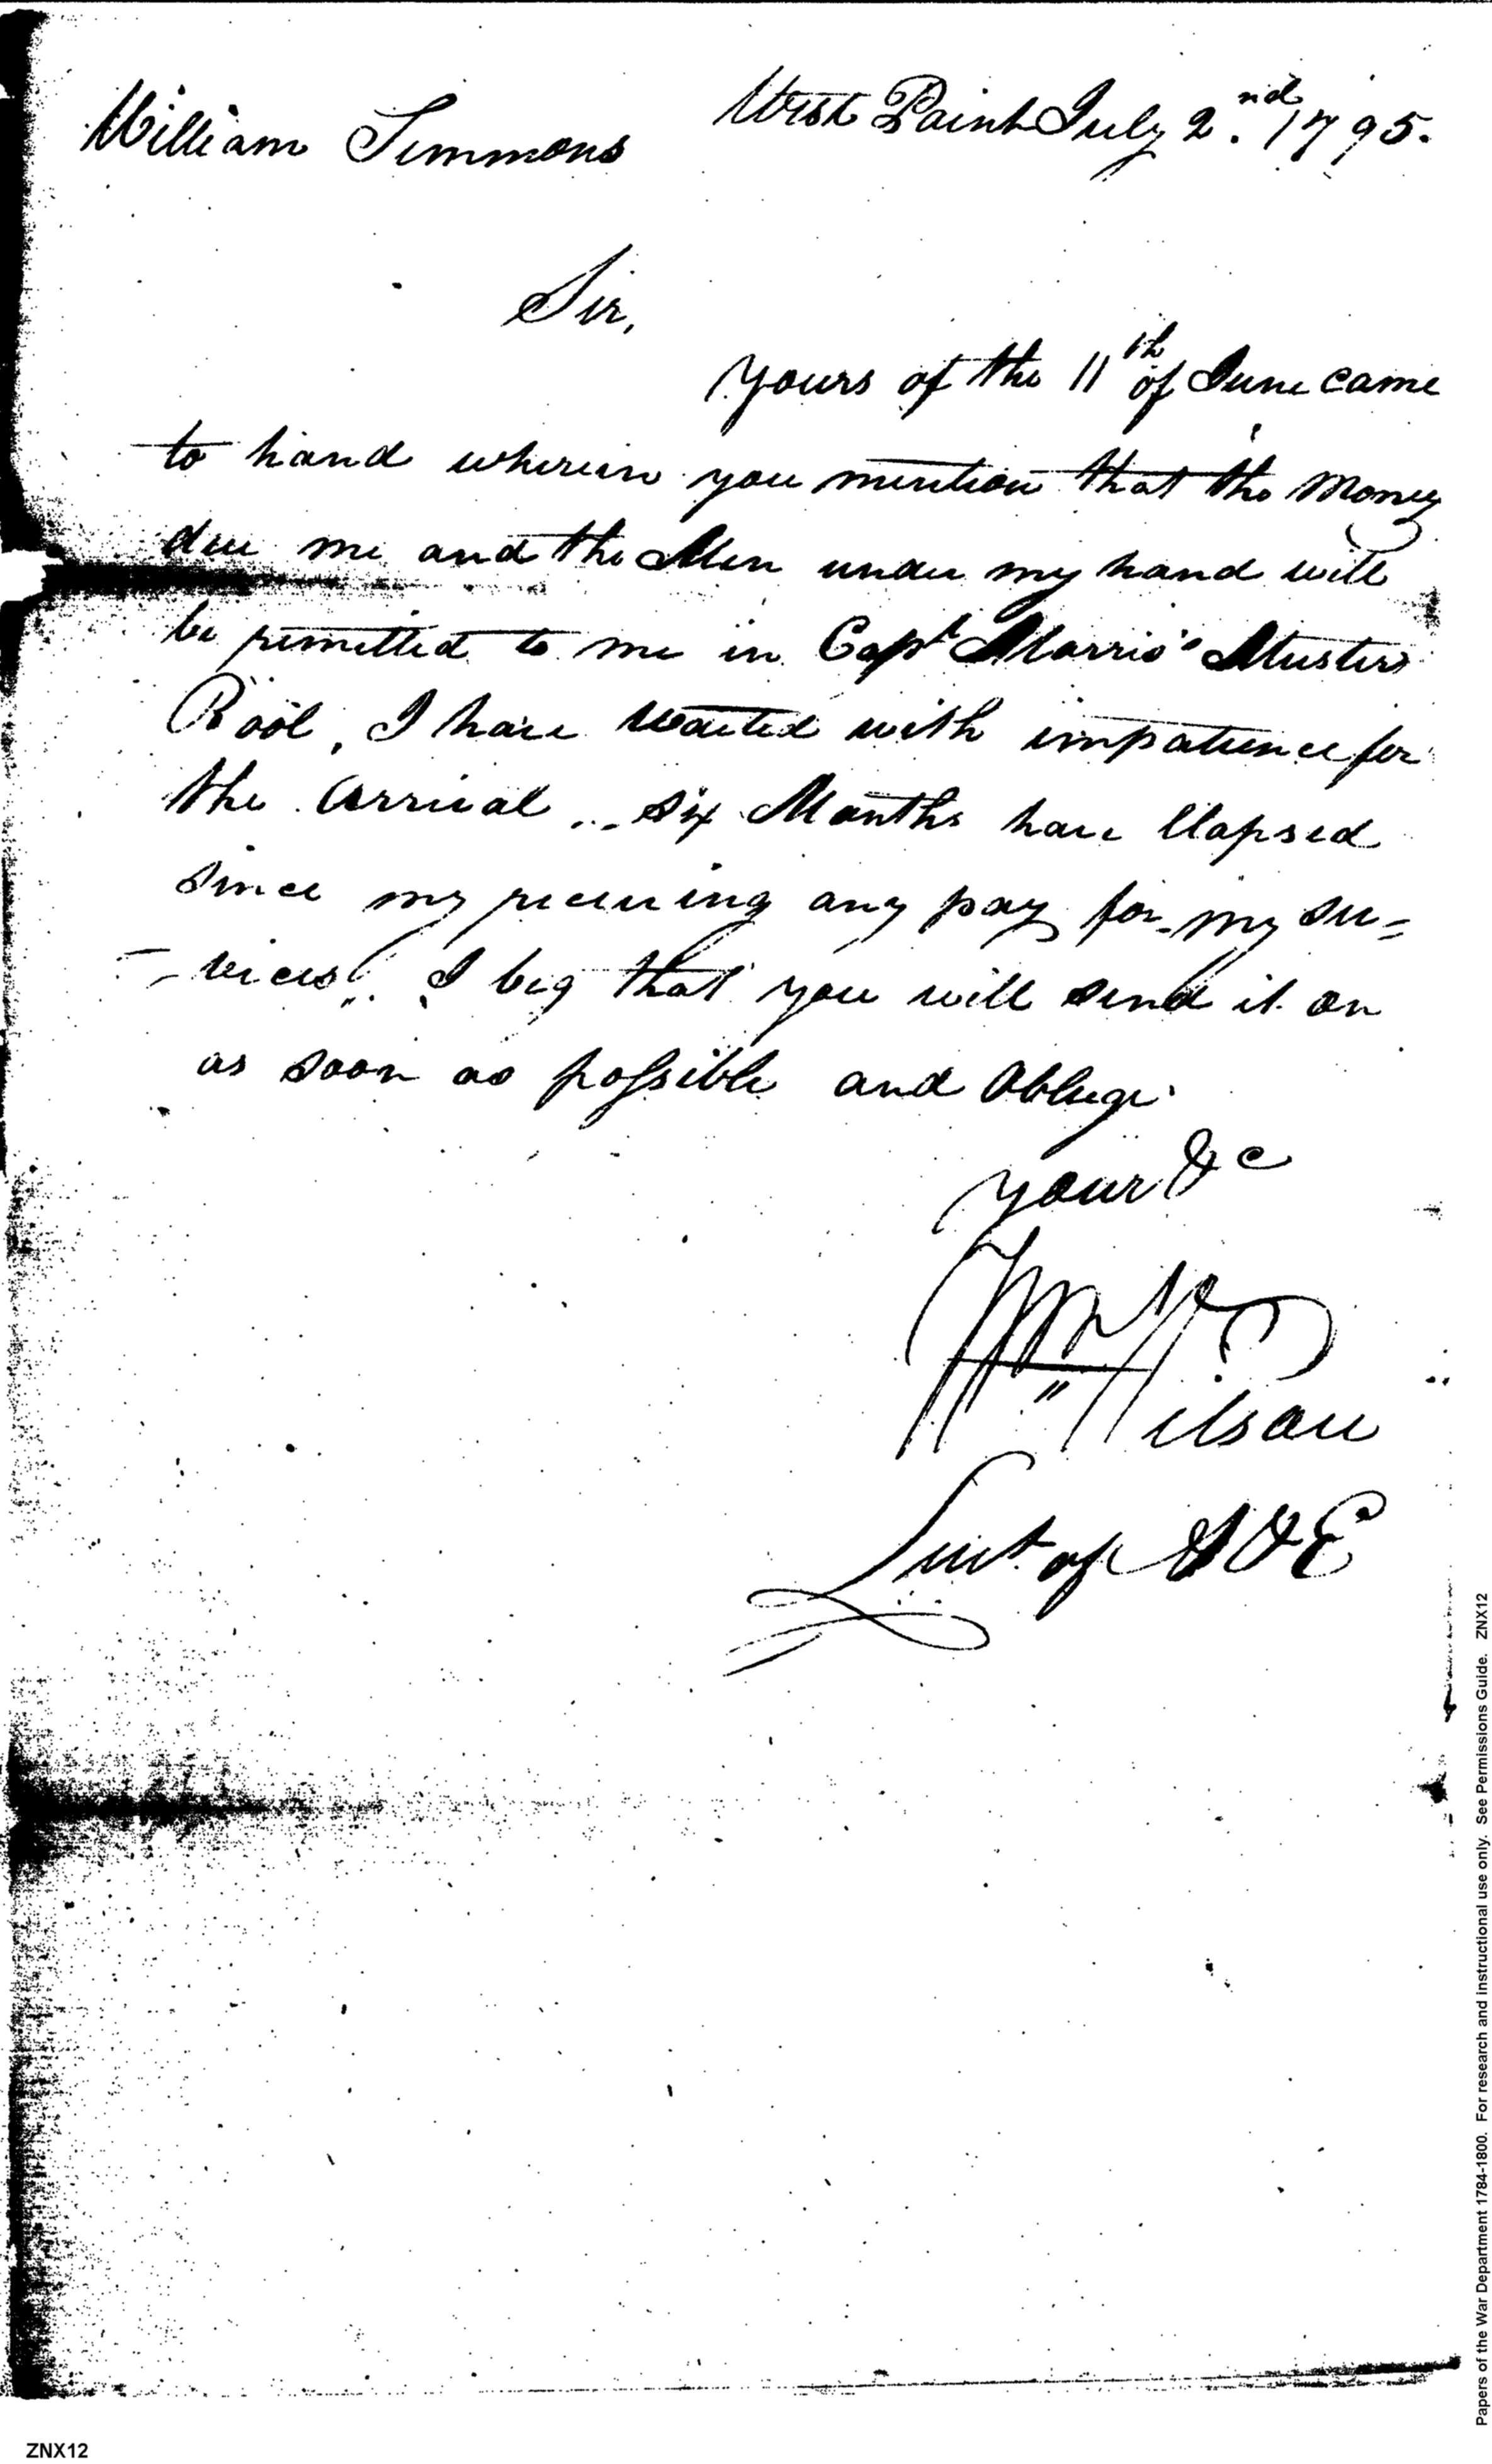 West Point July 2nd. 1795.
William Simmons
Sir,
Yours of the 11th of June came
to hand wherein you mention that the Money
due me and the Men under my hand will
be remitted to me in Capt Morris's Muster
Rool, I have waited with impatience for
the arrival ... six Months have Elapsed
since my receiving any pay for my ser=
=vices. I beg that you will send it on
as soon as possible and Oblige
your &c
Wm Wilson
Lieut of A & E
Papers of the War Department 1784-1800. For research and instructional use only. See Permissions Guide. ZNX12
ZNX12